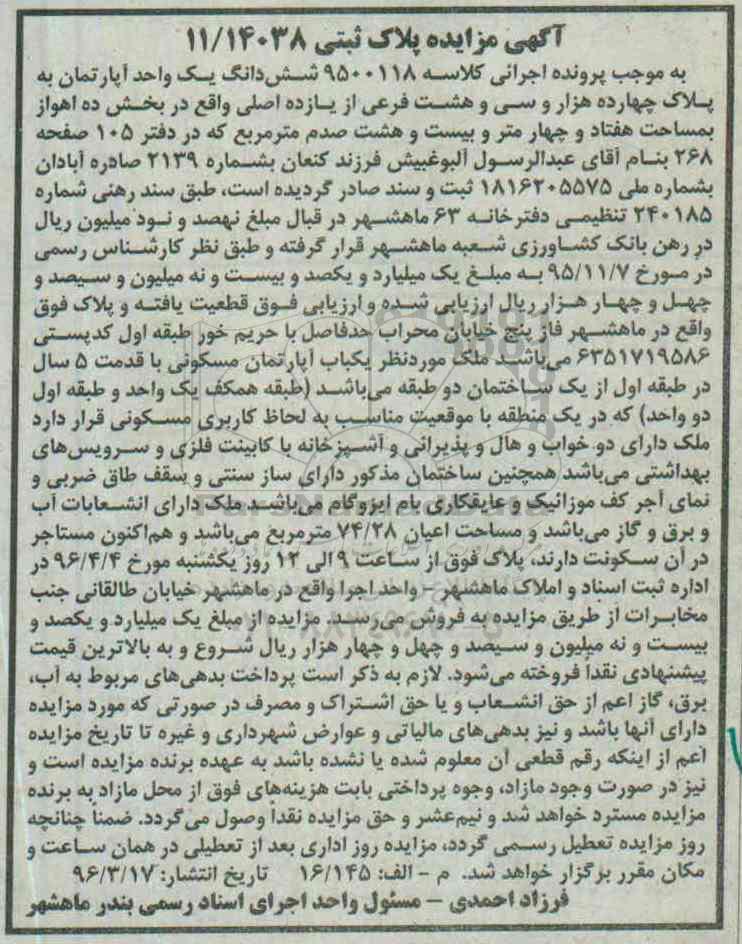 آگهی مزایده پلاک ثبتی ۱۱/۱۴۰۳۸
به موجب پرونده اجرائی کلاسه ۹۵۰۰۱۱۸ شش‌دانگ یک واحد آپارتمان به
پلاک چهارده هزار و سی و هشت فرعی از یازده اصلی واقع در بخش ده اهواز
بمساحت هفتاد و چهار متر و بیست و هشت صدم مترمربع که در دفتر ۱۰۵ صفحه
۲۶۸ بنام آقای عبدالرسول آلبوغبیش فرزند کنعان بشماره ۲۱۳۹ صادره آبادان
بشماره ملی ۱۸۱۶۲۰۵۵۷۵ ثبت و سند صادر گردیده است، طبق سند رهنی شماره
۲۴۰۱۸۵ تنظیمی دفترخانه ۶۳ ماهشهر در قبال مبلغ نهصد و نود میلیون ریال
در رهن بانک کشاورزی شعبه ماهشهر قرار گرفته و طبق نظر کارشناس رسمی
در مورخ ۹۵/۱۱/۷ به مبلغ یک میلیارد و یکصد و بیست و نه میلیون و سیصد و
چهل و چهار هزار ریال ارزیابی شده و ارزیابی فوق قطعیت یافته و پلاک فوق
واقع در ماهشهر فاز پنج خیابان محراب حدفاصل با حریم خور طبقه اول کدپستی
۶۳۵۱۷۱۹۵۸۶ می‌باشد ملک موردنظر یکباب آپارتمان مسکونی با قدمت ۵ سال
در طبقه اول از یک ساختمان دو طبقه می‌باشد (طبقه همکف یک واحد و طبقه اول
دو واحد) که در یک منطقه با موقعیت مناسب به لحاظ کاربری مسکونی قرار دارد
ملک دارای دو خواب و هال و پذیرائی و آشپزخانه با کابینت فلزی و سرویس‌های
بهداشتی می‌باشد همچنین ساختمان مذکور دارای ساز سنتی و سقف طاق ضربی و
نمای آجر کف موزائیک و عایقکاری بام ایزوگام می‌باشد ملک دارای انشعابات آب
و برق و گاز می‌باشد و مساحت اعیان ۷۴/۲۸ مترمربع می‌باشد و هم‌اکنون مستاجر
در آن سکونت دارند، پلاک فوق از ساعت ۹ الی ۱۲ روز یکشنبه مورخ ۹۶/۴/۴ در
اداره ثبت اسناد و املاک ماهشهر – واحد اجرا واقع در ماهشهر خیابان طالقانی جنب
مخابرات از طریق مزایده به فروش می‌رسد. مزایده از مبلغ یک میلیارد و یکصد و
بیست و نه میلیون و سیصد و چهل و چهار هزار ریال شروع و به بالاترین قیمت
پیشنهادی نقدا فروخته می‌شود. لازم به ذکر است پرداخت بدهی‌های مربوط به آب،
برق، گاز اعم از حق انشعاب و یا حق اشتراک و مصرف در صورتی که مورد مزایده
دارای آنها باشد و نیز بدهی‌های مالیاتی و عوارض شهرداری و غیره تا تاریخ مزایده
اعم از اینکه رقم قطعی آن معلوم شده یا نشده باشد به عهده برنده مزایده است و
نیز در صورت وجود مازاد، وجوه پرداختی بابت هزینه‌های فوق از محل مازاد به برنده
مزایده مسترد خواهد شد و نیم‌عشر و حق مزایده نقداً وصول می‌گردد. ضمناً چنانچه
روز مزایده تعطیل رسمی گردد، مزایده روز اداری بعد از تعطیلی در همان ساعت و
مکان مقرر برگزار خواهد شد. م – الف: ۱۶/۱۴۵ تاریخ انتشار: ۹۶/۳/۱۷
فرزاد احمدی – مسئول واحد اجرای اسناد رسمی بندر ماهشهر